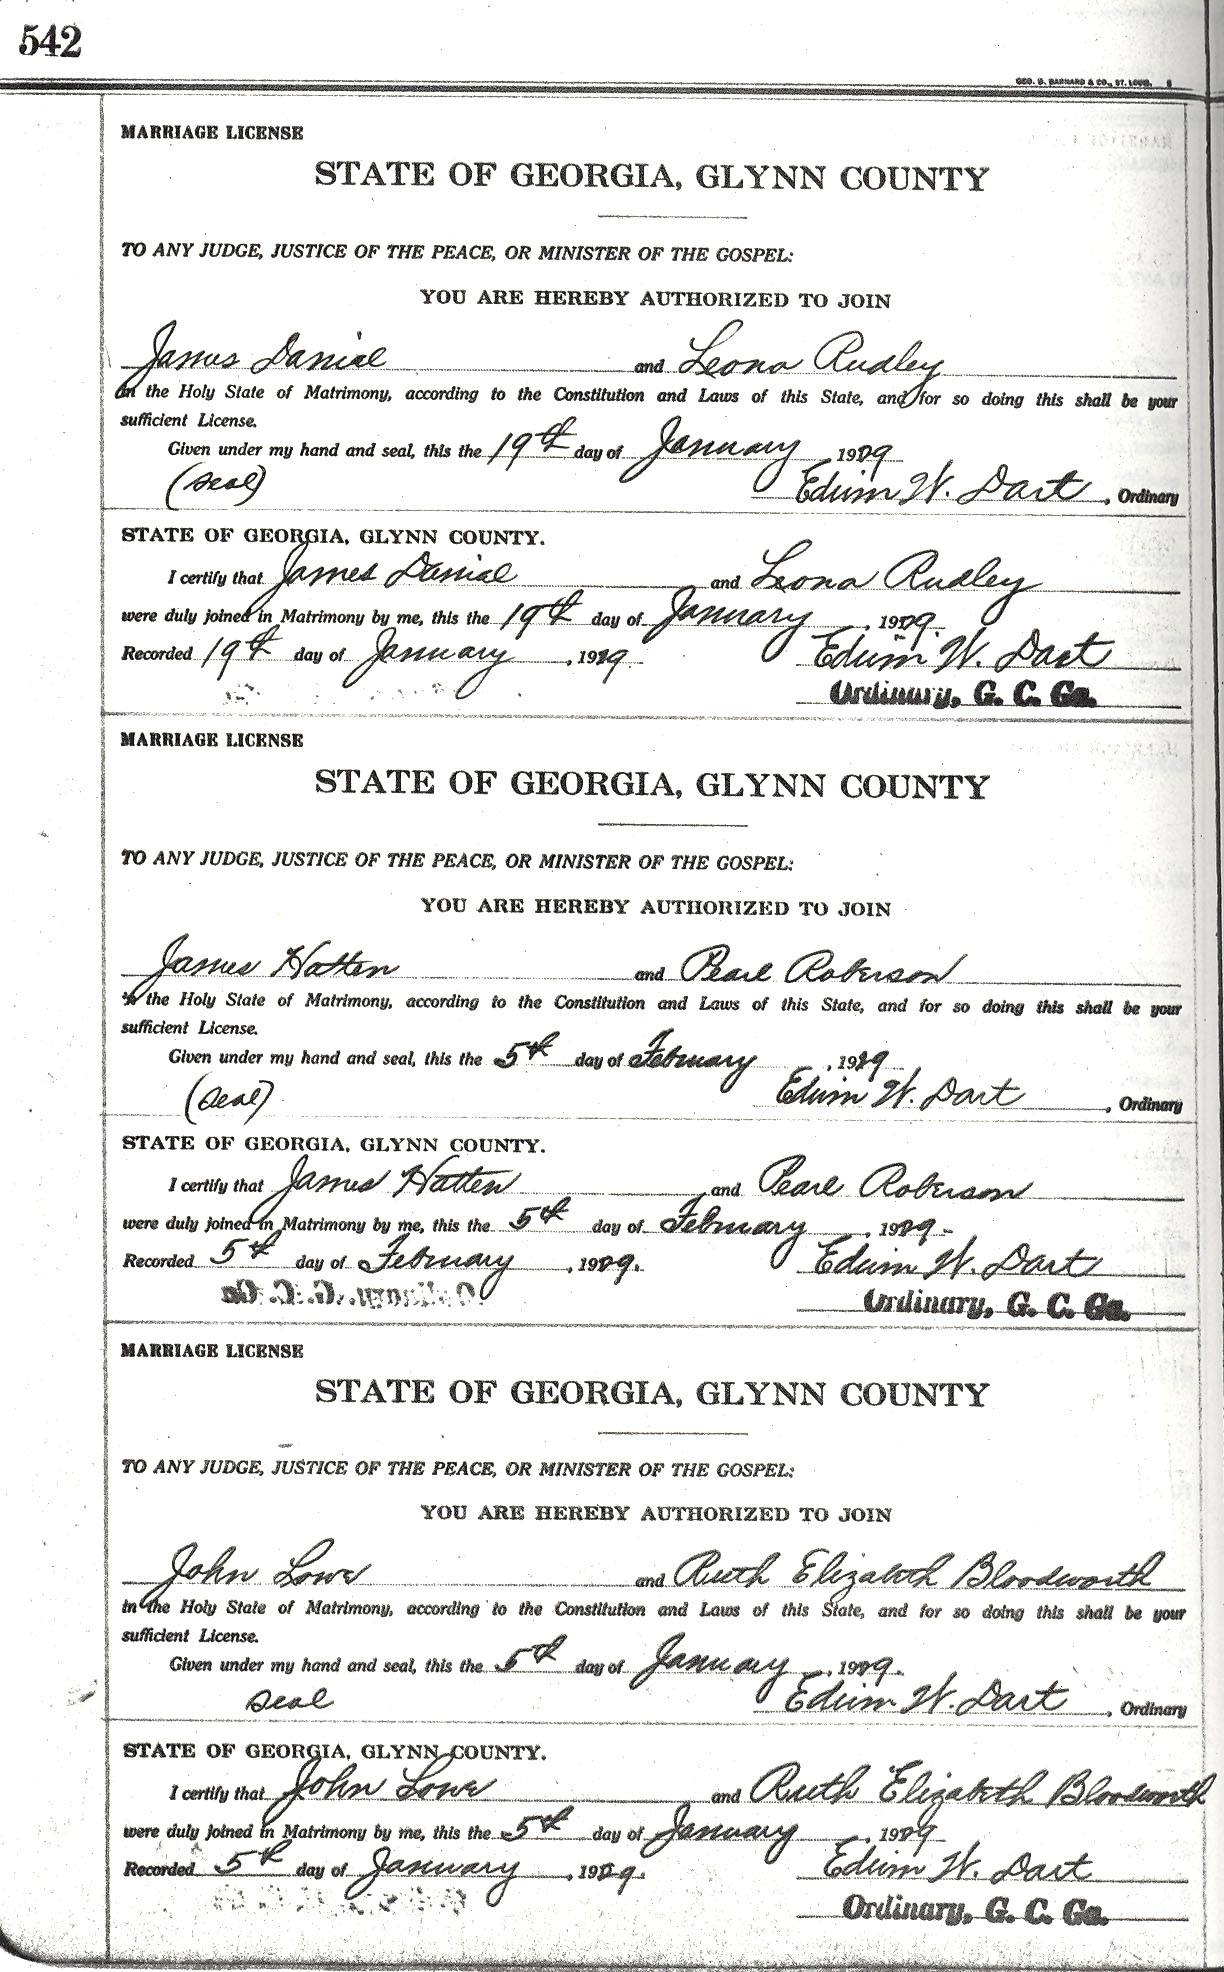 542
GEO. D. BARNARD & CO., ST. LOUIS.
MARRIAGE LICENSE
STATE OF GEORGIA, GLYNN COUNTY
TO ANY JUDGE, JUSTICE OF THE PEACE, OR MINISTER OF THE GOSPEL:
YOU ARE HEREBY AUTHORIZED TO JOIN
James Danial and Leona Rudley
in the Holy State of Matrimony, according to the Constitution and Laws of this State, and for so doing this shall be your
sufficient License.
Given under my hand and seal, this the 19th day of January, 19
(Seal) Edwin W. Dart, Ordinary
STATE OF GEORGIA, GLYNN COUNTY.
I certify that James Danial and Leona Rudley
were duly joined in Matrimony by me, this the 19th day of January, 19
Recorded 19th day of January, 19 Edwin W. Dart
Ordinary, G. C. Ga.
MARRIAGE LICENSE
STATE OF GEORGIA, GLYNN COUNTY
TO ANY JUDGE, JUSTICE OF THE PEACE, OR MINISTER OF THE GOSPEL:
YOU ARE HEREBY AUTHORIZED TO JOIN
James Hatten and Pearl Roberson
in the Holy State of Matrimony, according to the Constitution and Laws of this State, and for so doing this shall be your
sufficient License.
Given under my hand and seal, this the 5th day of February, 19
(Seal) Edwin W. Dart, Ordinary
STATE OF GEORGIA, GLYNN COUNTY.
I certify that James Hatten and Pearl Roberson
were duly joined in Matrimony by me, this the 5th day of February, 19
Recorded 5th day of February, 19 Edwin W. Dart
Ordinary, G. C. Ga.
MARRIAGE LICENSE
STATE OF GEORGIA, GLYNN COUNTY
TO ANY JUDGE, JUSTICE OF THE PEACE, OR MINISTER OF THE GOSPEL:
YOU ARE HEREBY AUTHORIZED TO JOIN
John Lowe and Ruth Elizabeth Bloodworth
in the Holy State of Matrimony, according to the Constitution and Laws of this State, and for so doing this shall be your
sufficient License.
Given under my hand and seal, this the 5th day of January, 19
Seal Edwin W. Dart, Ordinary
STATE OF GEORGIA, GLYNN COUNTY.
I certify that John Lowe and Ruth Elizabeth Bloodworth
were duly joined in Matrimony by me, this the 5th day of January, 19
Recorded 5th day of January, 19 Edwin W. Dart
Ordinary, G. C. Ga.